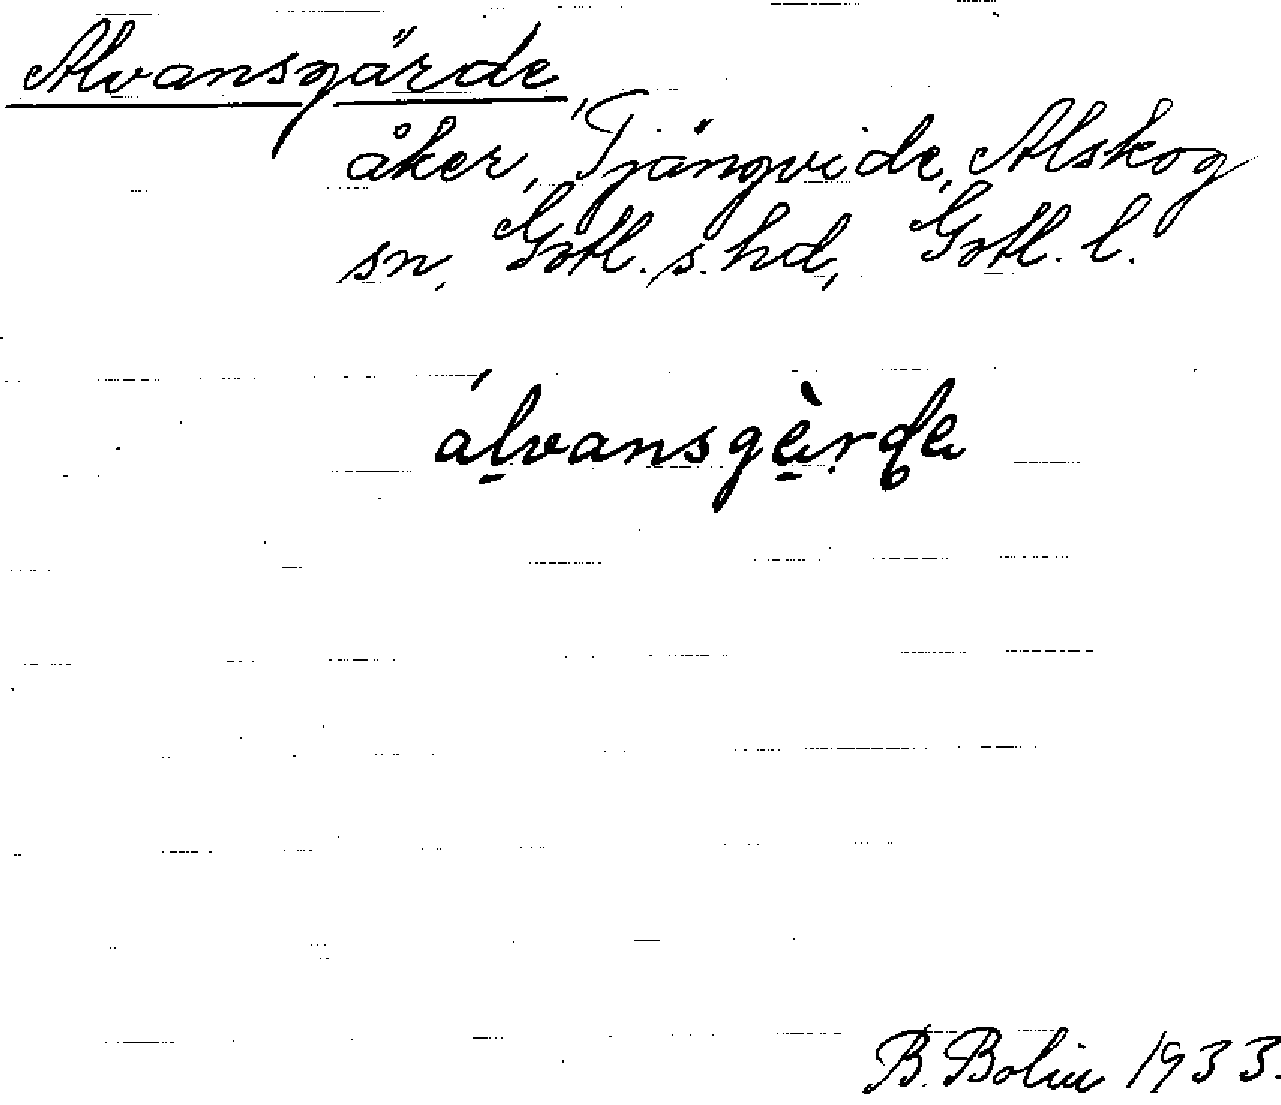 Alvansgärde,
åker, Tjängvide, Alskog
sn, Gotl. s. hd, Gotl. l.
álvansgèrde
B. Bolin 1933.